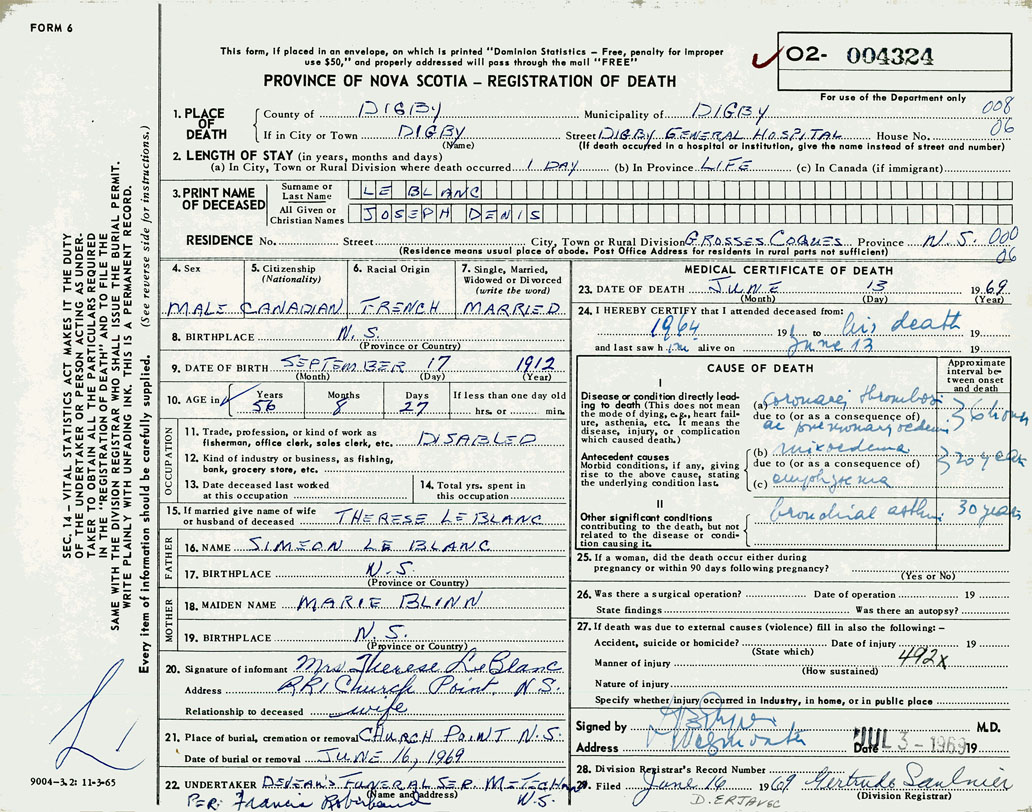 FORM 6
This form, if placed in an envelope, on which is printed "Dominion Statistics – Free, penalty for improper
use $50," and properly addressed will pass through the mail "FREE"
O2- 004324
PROVINCE OF NOVA SCOTIA – REGISTRATION OF DEATH
For use of the Department only
008
06
1. PLACE OF DEATH
County of DIGBY Municipality of DIGBY
If in City or Town DIGBY Street DIGBY GENERAL HOSPITAL House No.
(Name) (If death occurred in a hospital or institution, give the name instead of street and number)
2. LENGTH OF STAY (in years, months and days)
(a) In City, Town or Rural Division where death occurred 1 DAY (b) In Province LIFE (c) In Canada (if immigrant)
3. PRINT NAME OF DECEASED
Surname or Last Name LE BLANC
All Given or Christian Names JOSEPH DENIS
RESIDENCE No. Street City, Town or Rural Division GROSSES COQUES Province N.S. 000
(Residence means usual place of abode. Post Office Address for residents in rural parts not sufficient) 06
4. Sex
MALE
5. Citizenship
(Nationality)
CANADIAN
6. Racial Origin
FRENCH
7. Single, Married,
Widowed or Divorced
(write the word)
MARRIED
8. BIRTHPLACE N.S.
(Province or Country)
9. DATE OF BIRTH SEPTEMBER 17 1912
(Month) (Day) (Year)
10. AGE in Years Months Days If less than one day old
56 8 27 hrs. or min.
OCCUPATION
11. Trade, profession, or kind of work as
fisherman, office clerk, sales clerk, etc. DISABLED
12. Kind of industry or business, as fishing,
bank, grocery store, etc.
13. Date deceased last worked
at this occupation
14. Total yrs. spent in
this occupation
15. If married give name of wife
or husband of deceased THERESE LEBLANC
FATHER
16. NAME SIMEON LE BLANC
17. BIRTHPLACE N.S.
(Province or Country)
MOTHER
18. MAIDEN NAME MARIE BLINN
19. BIRTHPLACE N.S.
(Province or Country)
20. Signature of informant Mrs Therese LeBlanc
Address RR1 Church Point, N.S.
Relationship to deceased wife
21. Place of burial, cremation or removal CHURCH POINT N.S.
Date of burial or removal JUNE 16, 1969
22. UNDERTAKER DEVEAU'S FUNERAL SER. METEGHAN
(Name and address)
PER: Francis N.S.
MEDICAL CERTIFICATE OF DEATH
23. DATE OF DEATH JUNE 13 1969
(Month) (Day) (Year)
24. I HEREBY CERTIFY that I attended deceased from:
1964 19 to his death 19
and last saw him alive on June 13 19
CAUSE OF DEATH
Approximate
interval be-
tween onset
and death
I
Disease or condition directly lead-
ing to death (This does not mean
the mode of dying, e.g., heart fail-
ure, asthenia, etc. It means the
disease, injury, or complication
which caused death.)
(a) coronary thrombosis
due to (or as a consequence of)
6 hours
Antecedent causes
Morbid conditions, if any, giving
rise to the above cause, stating
the underlying condition last.
(b)
due to (or as a consequence of)
(c) emphysema
20 years
II
Other significant conditions
contributing to the death, but not
related to the disease or condi-
tion causing it.
bronchial asthma 30 years
25. If a woman, did the death occur either during
pregnancy or within 90 days following pregnancy?
(Yes or No)
26. Was there a surgical operation? Date of operation 19
State findings Was there an autopsy?
27. If death was due to external causes (violence) fill in also the following: –
Accident, suicide or homicide? Date of injury 19
(State which) 492x
Manner of injury
(How sustained)
Nature of injury
Specify whether injury occurred in industry, in home, or in public place
Signed by M.D.
Address Weymouth Date JUL 3 - 1969 19
28. Division Registrar's Record Number
29. Filed June 16 1969 Gertrude Saulnier
(Division Registrar)
D. ERJAVEC
SEC. 14 – VITAL STATISTICS ACT MAKES IT THE DUTY
OF THE UNDERTAKER OR PERSON ACTING AS UNDER-
TAKER TO OBTAIN ALL THE PARTICULARS REQUIRED
IN THE "REGISTRATION OF DEATH" AND TO FILE THE
SAME WITH THE DIVISION REGISTRAR WHO SHALL ISSUE THE BURIAL PERMIT.
WRITE PLAINLY WITH UNFADING INK. THIS IS A PERMANENT RECORD.
Every item of information should be carefully supplied. (See reverse side for instructions.)
9004-3.2: 11-3-65